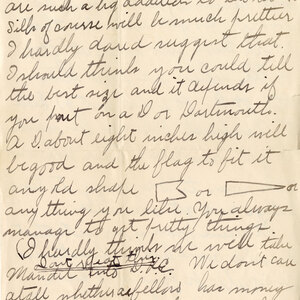 are such a big addition to
Silk of course will be much prettier
I hardly dared suggest that.
I should think you could tell
the best size and it depends if
you put on a D or Dartmouth.
A D about eight inches high will
be good and the flag to fit it
any old shape or or
anything you like. You always
manage to get pretty things.
I hardly think we will take
We don't care
a fellow has money